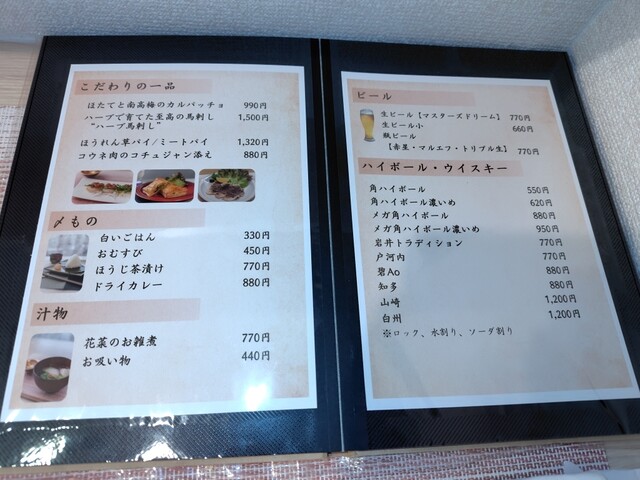 こだわりの一品
ほたてと南高梅のカルパッチョ 990円
ハーブで育てた至高の馬刺し 1,500円
“ハーブ馬刺し”
ほうれん草パイ/ミートパイ 1,320円
コウネ肉のコチュジャン添え 880円
〆もの
白いごはん 330円
おむすび 450円
ほうじ茶漬け 770円
ドライカレー 880円
汁物
花菜のお雑煮 770円
お吸い物 440円
ビール
生ビール【マスターズドリーム】 770円
生ビール小 660円
瓶ビール
【赤星・マルエフ・トリプル生】 770円
ハイボール・ウイスキー
角ハイボール 550円
角ハイボール濃いめ 620円
メガ角ハイボール 880円
メガ角ハイボール濃いめ 950円
岩井トラディション 770円
戸河内 770円
碧Ao 880円
知多 880円
山崎 1,200円
白州 1,200円
※ロック、水割り、ソーダ割り